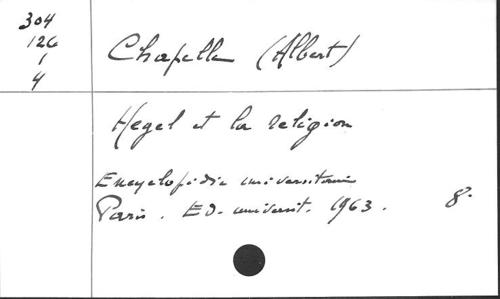 304
126
1
4
Chapelle (Albert)
Hegel et la religion
Encyclopédie universitaire
Paris. Ed. universit. 1963. 8.